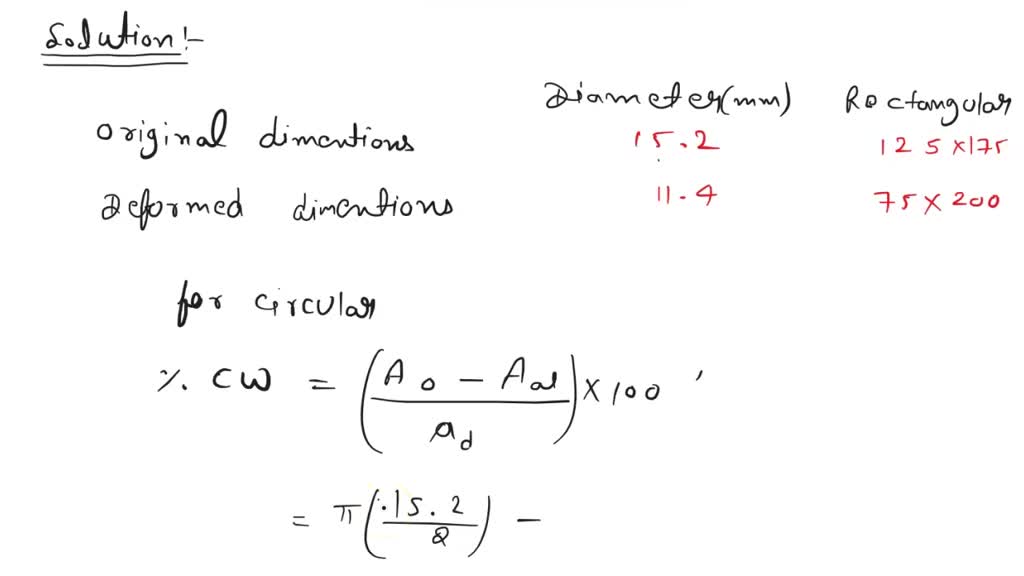 Solution:-
Diameter(mm) Rectangular
Original dimentions 15.2 125×175
Deformed dimentions 11.4 75×200
for circular
%. CW = (A0 - Aad / ad) × 100 ,
= π(.15.2 / 2) -